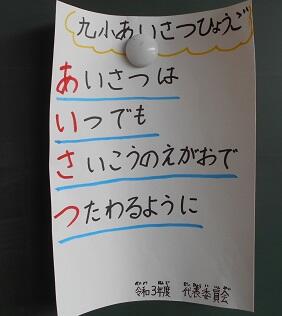 九小あいさつひょうご
あいさつは
いつでも
さいこうのえがおで
つたわるように
令和3年度 代表委員会